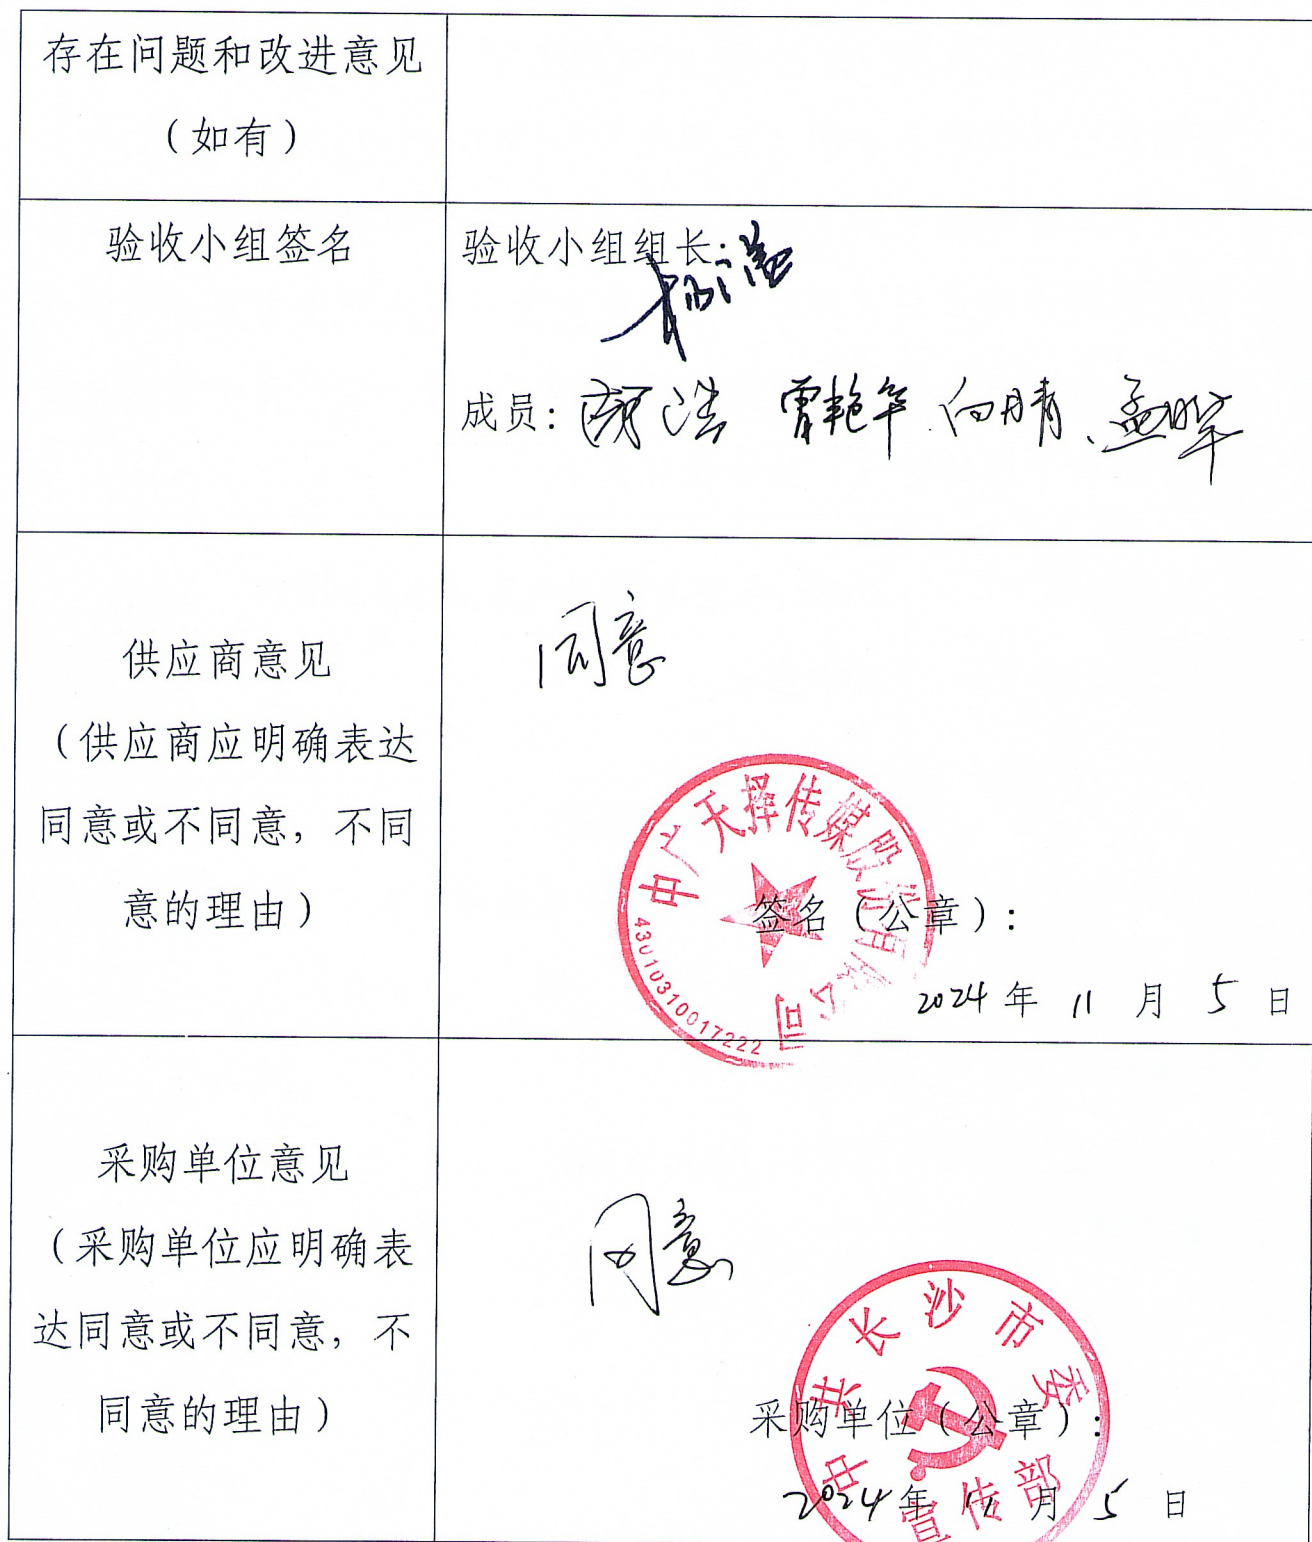 存在问题和改进意见
（如有）
验收小组签名
验收小组组长：
成员：颜浩 曾艳华 向晴 孟晖
供应商意见
（供应商应明确表达
同意或不同意，不同
意的理由）
同意
中广天择传媒股份有限公司
43010310017222
签名（公章）：
2024年 11 月 5 日
采购单位意见
（采购单位应明确表
达同意或不同意，不
同意的理由）
同意
中共长沙市委
宣传部
采购单位（公章）：
2024年 11 月 5 日